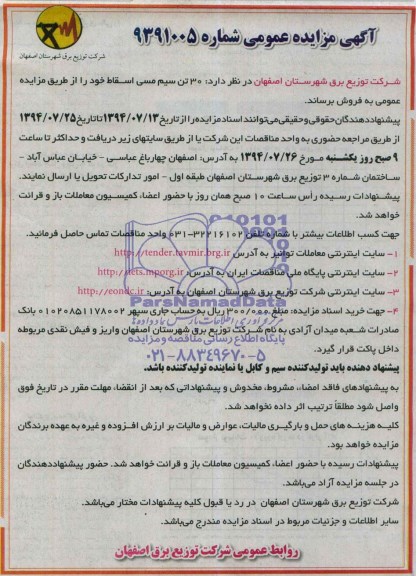 آگهی مزایده عمومی شماره ۹۳۹۱۰۰۵
شرکت توزیع برق شهرستان اصفهان
شرکت توزیع برق شهرستان اصفهان در نظر دارد: ۳۰ تن سیم مسی اسقاط خود را از طریق مزایده
عمومی به فروش برساند.
پیشنهاددهندگان حقوقی و حقیقی می‌توانند اسناد مزایده را از تاریخ ۱۳۹۴/۰۷/۱۳ تا تاریخ ۱۳۹۴/۰۷/۲۵
از طریق مراجعه حضوری به واحد مناقصات این شرکت یا از طریق سایتهای زیر دریافت و حداکثر تا ساعت
۹ صبح روز یکشنبه مورخ ۱۳۹۴/۰۷/۲۶ به آدرس: اصفهان چهارباغ عباسی - خیابان عباس آباد -
ساختمان شماره ۳ توزیع برق شهرستان اصفهان طبقه اول - امور تدارکات تحویل یا ارسال نمایند.
پیشنهادات رسیده رأس ساعت ۱۰ صبح همان روز با حضور اعضاء کمیسیون معاملات باز و قرائت
خواهد شد.
جهت کسب اطلاعات بیشتر با شماره تلفن ۳۲۲۱۶۱۰۲-۰۳۱ واحد مناقصات تماس حاصل فرمائید.
۱- سایت اینترنتی معاملات توانیر به آدرس http://tender.tavanir.org.ir
۲- سایت اینترنتی پایگاه ملی مناقصات ایران به آدرس: http://iets.mporg.ir
۳- سایت اینترنتی شرکت توزیع برق شهرستان اصفهان به آدرس: http://eondc.ir
۴- جهت خرید اسناد مزایده: مبلغ ۳۰۰/۰۰۰ ریال به حساب جاری سپهر ۰۱۰۲۰۸۵۱۱۷۸۰۰۲ بانک
صادرات شعبه میدان آزادی به نام شرکت توزیع برق شهرستان اصفهان واریز و فیش نقدی مربوطه
داخل پاکت قرار گیرد.
پیشنهاد دهنده باید تولیدکننده سیم و کابل یا نماینده تولیدکننده باشد.
به پیشنهادهای فاقد امضاء، مشروط، مخدوش و پیشنهاداتی که بعد از انقضاء مهلت مقرر در تاریخ فوق
واصل شود مطلقاً ترتیب اثر داده نخواهد شد.
کلیه هزینه های حمل و بارگیری مالیات، عوارض و مالیات بر ارزش افزوده و غیره به عهده برندگان
مزایده خواهد بود.
پیشنهادات رسیده با حضور اعضاء کمیسیون معاملات باز و قرائت خواهد شد. حضور پیشنهاددهندگان
در جلسه مزایده آزاد می‌باشد.
شرکت توزیع برق شهرستان اصفهان در رد یا قبول کلیه پیشنهادات مختار می‌باشد.
سایر اطلاعات و جزئیات مربوط در اسناد مزایده مندرج می‌باشد.
روابط عمومی شرکت توزیع برق اصفهان
ParsNamadData
۰۲۱-۸۸۳۴۹۶۷۰-۵